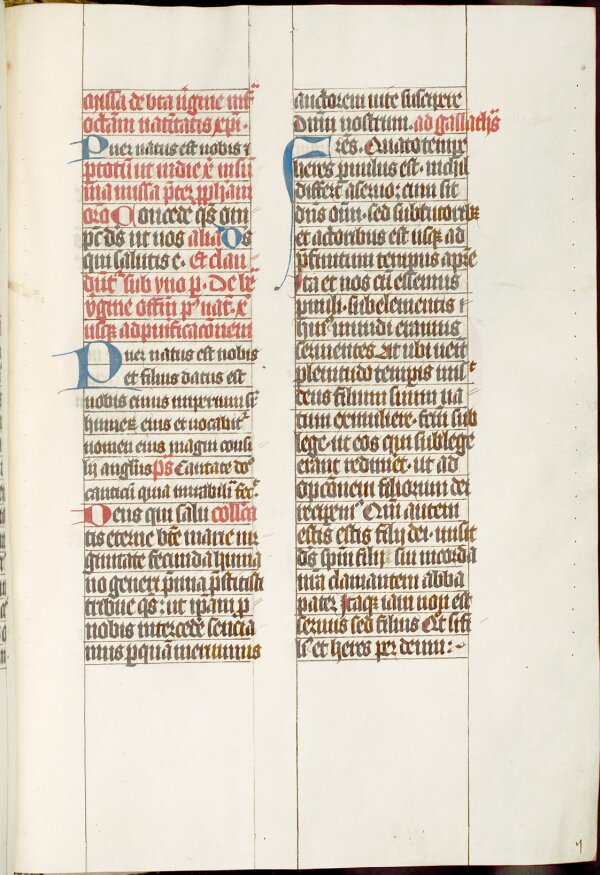 Missa de bta v̄gine inf̄
octām natiūtatis xp̄i ·
Puer natus est nobis ⁊
p totū ut in die x̄ in sūi
ma missa p̄ter p̄phām
orō Concede qs om̄
pc̄ ds ut nos alia Ds
qui salutis e · Et clau
dūt᷑ sub vno p · De bē
v̄gine offm̄ p⁹ nat᷑ x̄
usq₃ ad puificacōnem
Puer natus est nobis
et filius datus est
nobis cuius imperium sr̄
humeꝝ eius et vocabit᷑
nomen eius magni consi
lij anglus ps Cantate do͂
canticū quia mirabilia fec᷑
Deus qui salu collcā
tis eterne bte marie vir
ginitate fecunda huma
no generi p̄mia p̄stitisti
tribue qs : ut ip̄am p
nobis intercede᷑ sencia
mus p quā meruimus
auctorem vite suscipere
Dn̄m nostrum · ad gallathas
Fres · Quāto tempe
heres p̄uulus est · nichil
differt a seruo : cum sit
dn̄s om̄i · sed sub tutoribꝫ
et actoribus est usq₃ ad
p̄finitum tempus a pr̄e
Ita et nos cū essemus
p̄uuli · sub elementis ⁊
hui⁹ mundi eramus
seruientes At ubi ueīt
plenitudo tempis · misit
deus filium suum na
tum ex muliere · fc̄m sub
lege · ut eos qui sub lege
erant redimet · ut ad
opcōnem filiorum dei
recipem⁹ Qm̄ autem
estis estis filij dei · misit
ds spm̄ filij sui in corda
nr̄a clamantem abba
pater Itaq₃ iam non est
seruus sed filius Qt si fi
li⁹ et heres per deum : ~